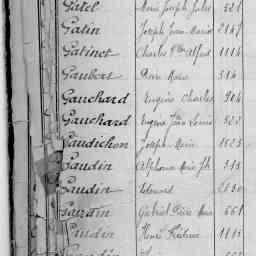 Gatel Marie Joseph Jules 321
Gatin Joseph Jean Marie 2147
Gatinet Charles Alfred 1114
Gaubert Marie 314
Gauchard Eugène Charles 904
Gauchard Eugène Jean Louis 525
Gaudichon Joseph Marie 1525
Gaudin Alphonse Marie Jh 315
Gaudin Edouard 2830
Gaudin Gabriel Pierre Marie 661
Gaudin Henri 1115